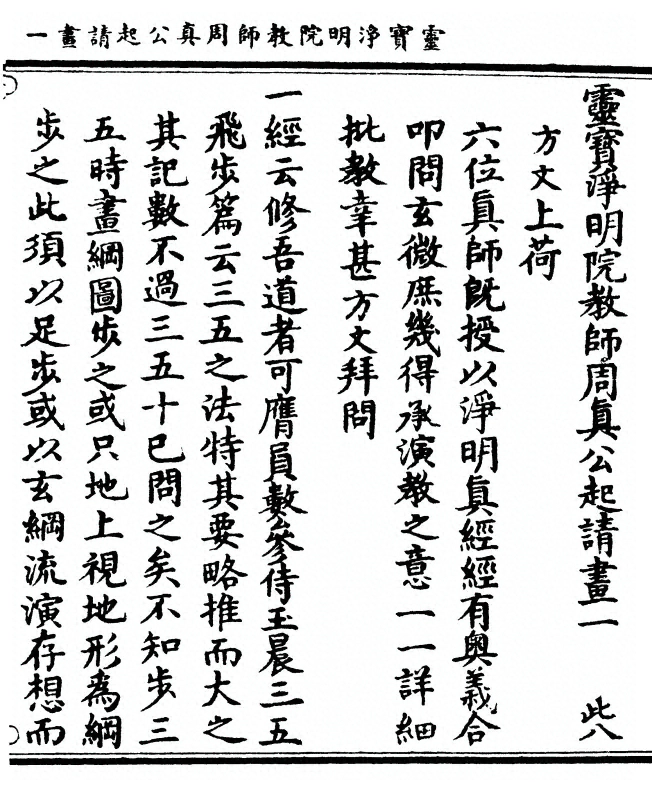 靈寶淨明院教師周真公起請畫一
靈寶淨明院教師周眞公起請畫一 此八
方文上荷
六位眞師既授以淨明眞經經有奧義合
叩問玄微庶幾得承演教之意一一詳細
批教幸甚方文拜問
一經云修吾道者可膺員數參侍玉晨三五
飛步篇云三五之法特其要略推而大之
其記數不過三五十巳問之矣不知步三
五時畫綱圖步之或只地上視地形為綱
步之此須以足步或以玄綱流演存想而